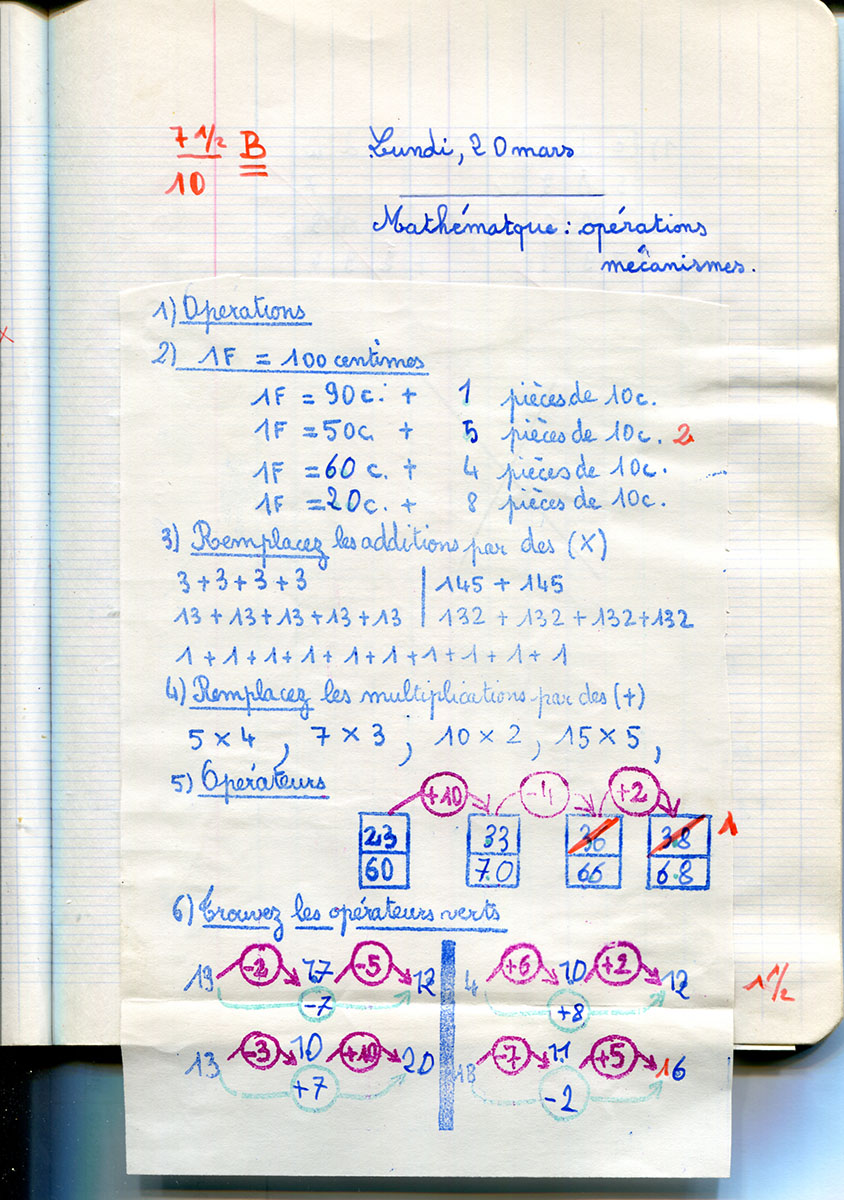 7 1/2 B
10
Lundi, 20 mars
Mathématque : opérations
mécanismes.
1) Operations
2) 1F = 100 centimes
1F = 90c. + 1 pièces de 10c.
1F = 50c. + 5 pièces de 10c. 2
1F = 60 c. + 4 pièces de 10c.
1F = 20c. + 8 pièces de 10c.
3) Remplacez les additions par des (×)
3 + 3 + 3 + 3 | 145 + 145
13 + 13 + 13 + 13 + 13 | 132 + 132 + 132 + 132
1 + 1 + 1 + 1 + 1 + 1 + 1 + 1 + 1 + 1
4) Remplacez les multiplications par des (+)
5 × 4 , 7 × 3 , 10 × 2 , 15 × 5 ,
5) Opérateurs
+10 -4 +2
23 33 36 38 1
60 70 66 68
6) Trouvez les opérateurs verts
19 -2 17 -5 12 4 +6 10 +2 12
-7 +8 1 1/2
13 -3 10 +10 20 18 -7 11 +5 16
+7 -2